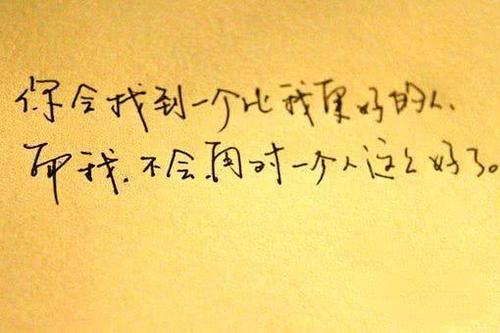 你会找到一个比我更好的人、
而我.不会再对一个人这么好了。